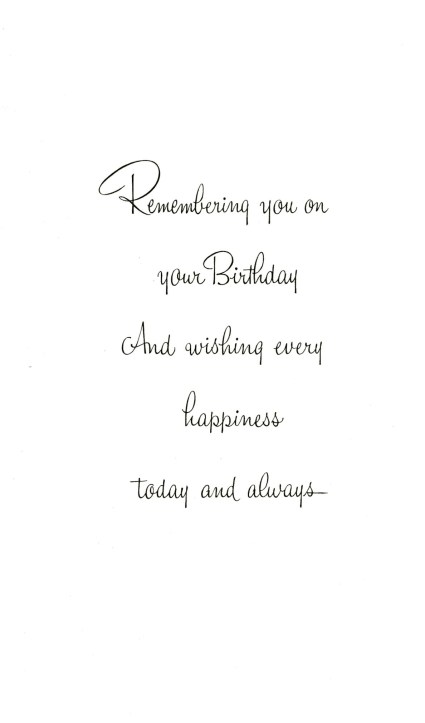 Remembering you on
your Birthday
And wishing every
happiness
today and always—